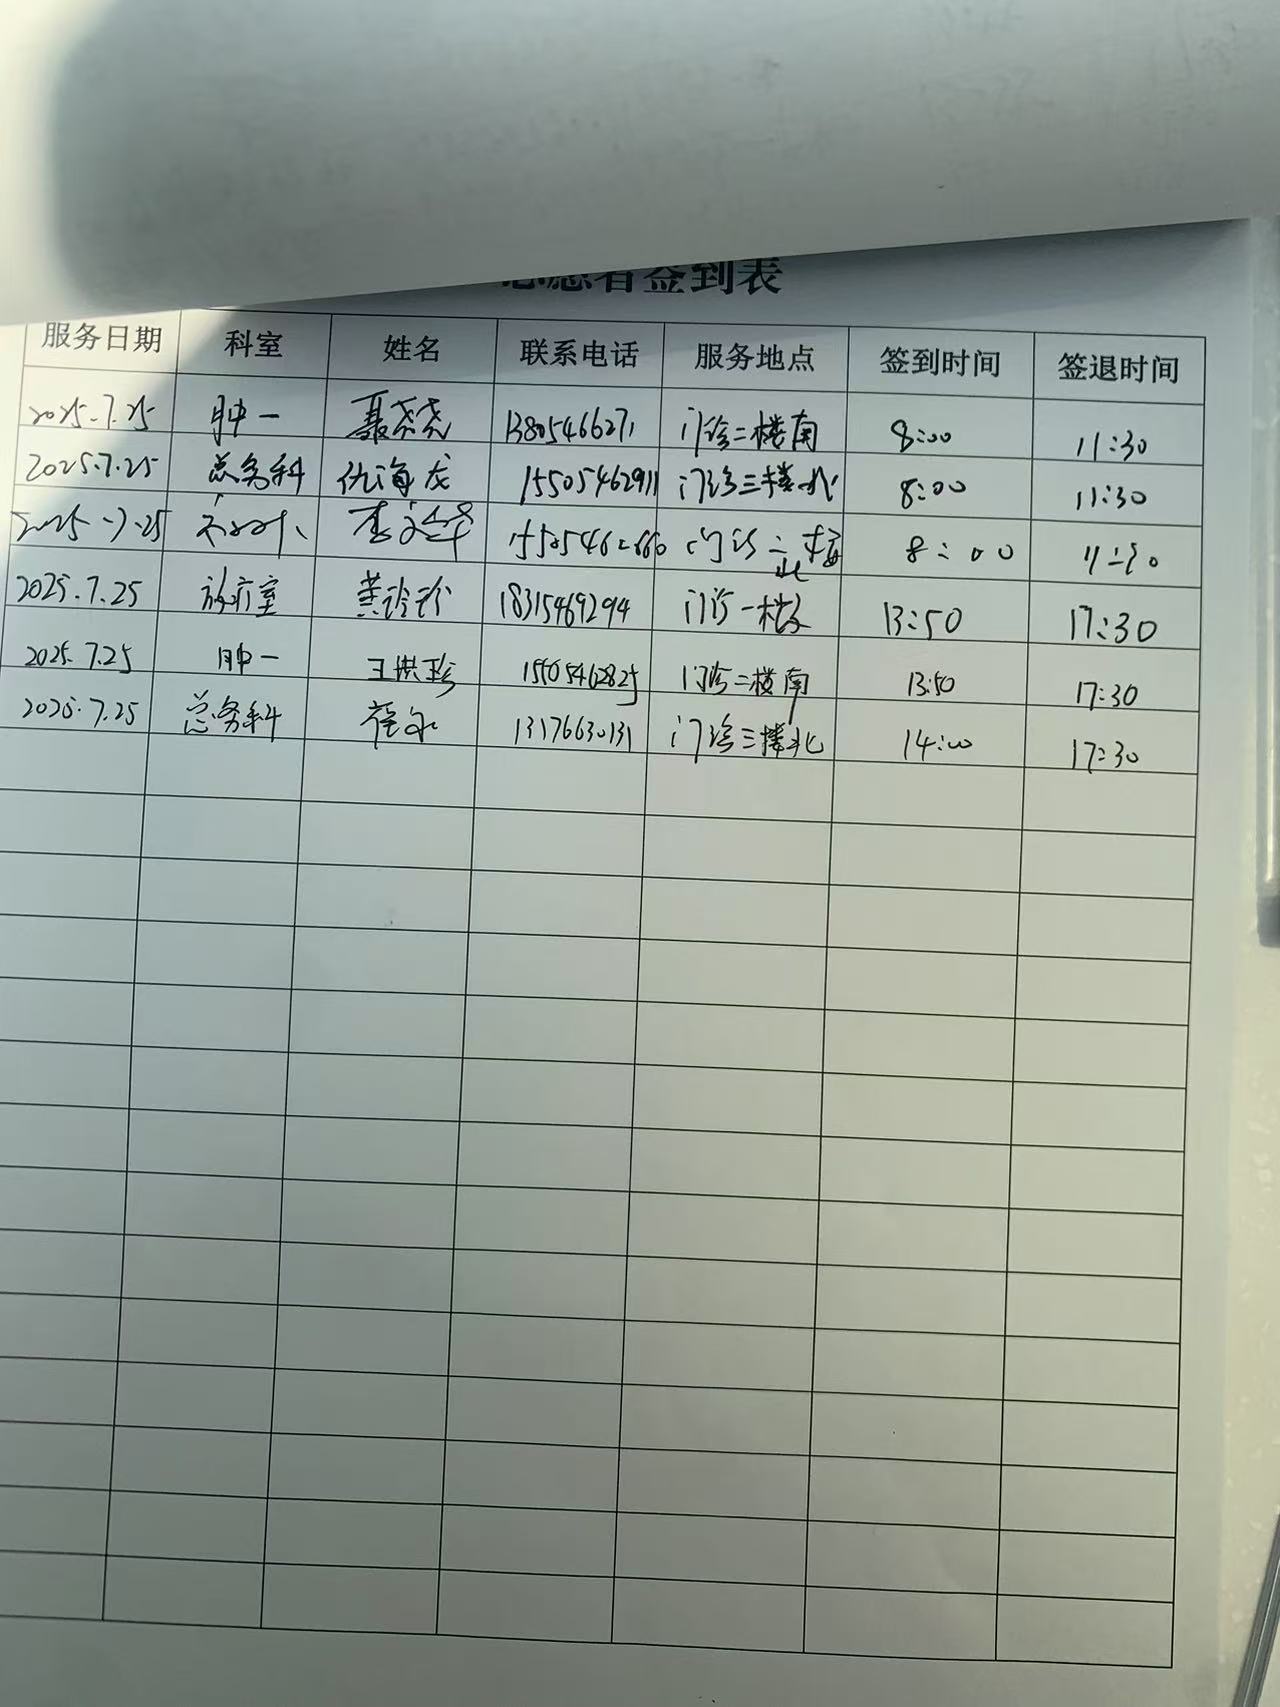 志愿者签到表
服务日期 科室 姓名 联系电话 服务地点 签到时间 签退时间
2025.7.25 肿一 聂尧尧 13805466271 门诊二楼南 8:00 11:30
2025.7.25 总务科 仇海龙 15505462911 门诊三楼北 8:00 11:30
2025.7.25 李文华 门诊二楼北 8:00
2025.7.25 放疗室 黄玲玲 18315469294 门诊一楼 13:50 17:30
2025.7.25 肿一 王洪珍 15505462825 门诊二楼南 13:50 17:30
2025.7.25 总务科 13176630131 门诊三楼北 14:00 17:30